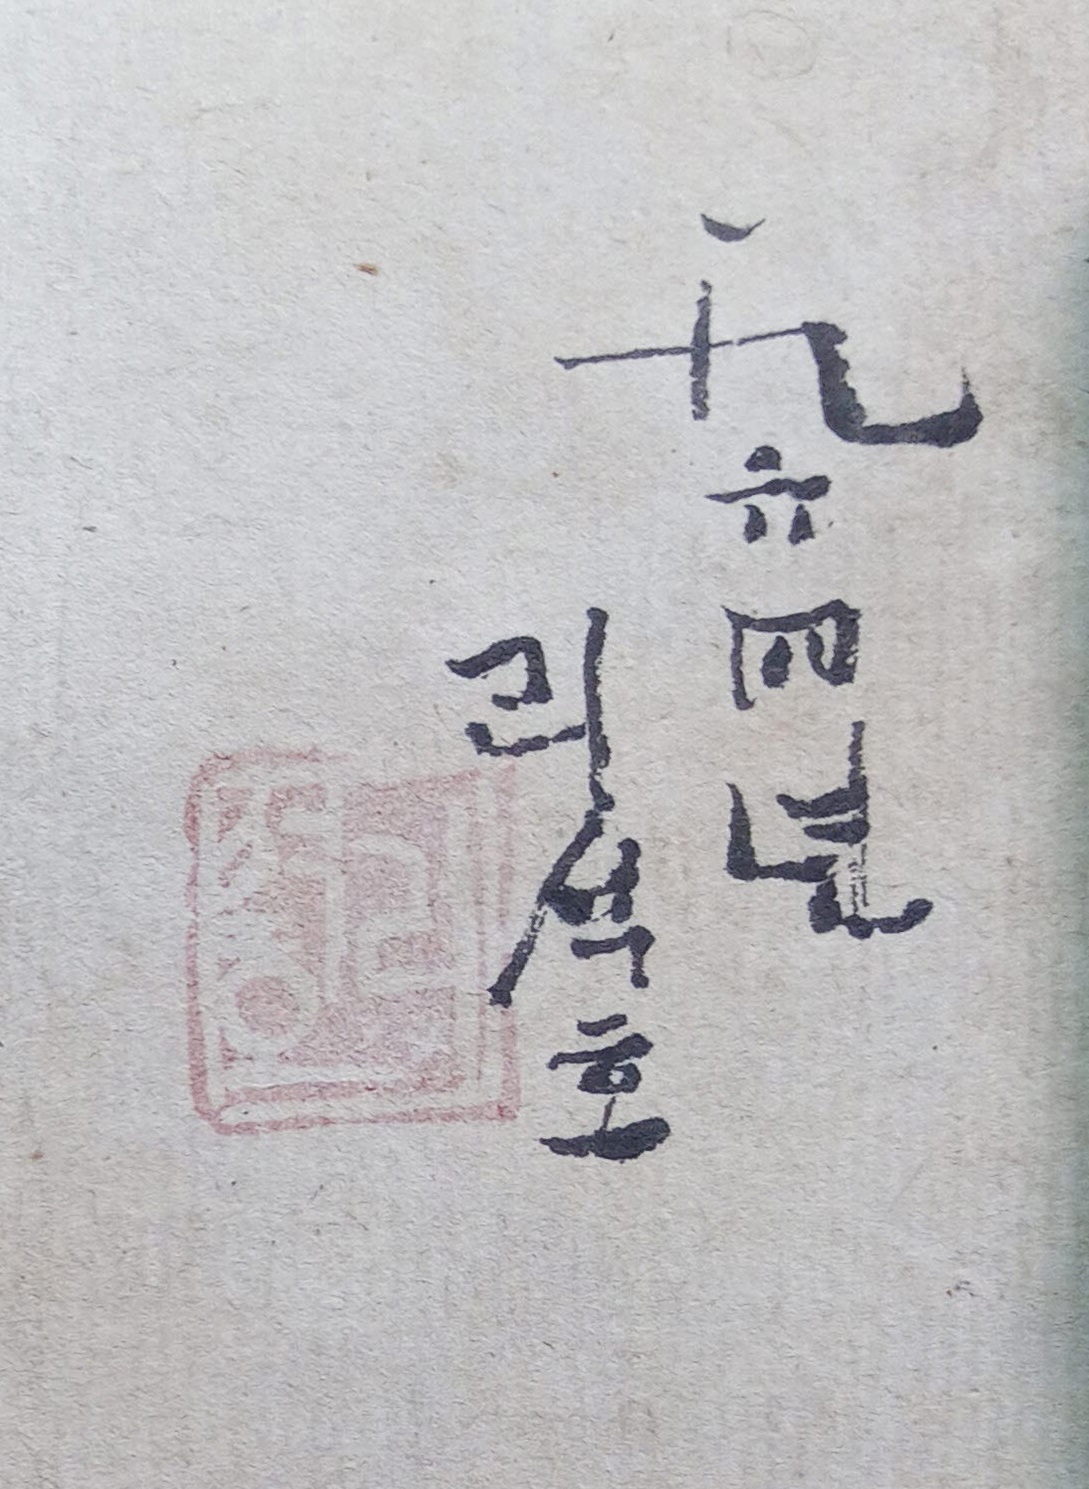 一九六四년
리석호